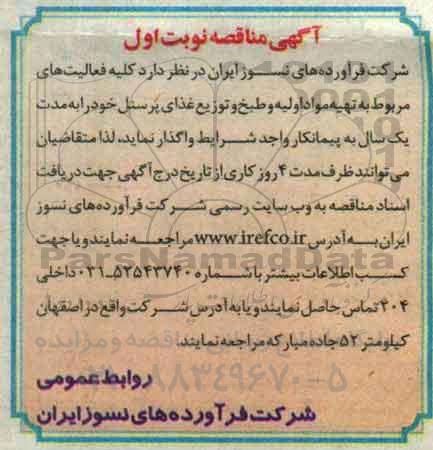 آگهی مناقصه نوبت اول
شرکت فرآورده‌های نسوز ایران در نظر دارد کلیه فعالیت‌های
مربوط به تهیه مواد اولیه و طبخ و توزیع غذای پرسنل خود را به مدت
یک سال به پیمانکار واجد شرایط واگذار نماید، لذا متقاضیان
می‌توانند ظرف مدت ۴ روز کاری از تاریخ درج آگهی جهت دریافت
اسناد مناقصه به وب سایت رسمی شرکت فرآورده‌های نسوز
ایران به آدرس www.irefco.ir مراجعه نمایند و یا جهت
کسب اطلاعات بیشتر با شماره ۵۲۵۴۳۷۴۰-۰۳۱ داخلی
۲۰۴ تماس حاصل نمایند و یا به آدرس شرکت واقع در اصفهان
کیلومتر ۵۲ جاده مبارکه مراجعه نمایند.
روابط عمومی
شرکت فرآورده‌های نسوز ایران
ParsNamadData
۸۸۳۴۹۶۷۰-۵